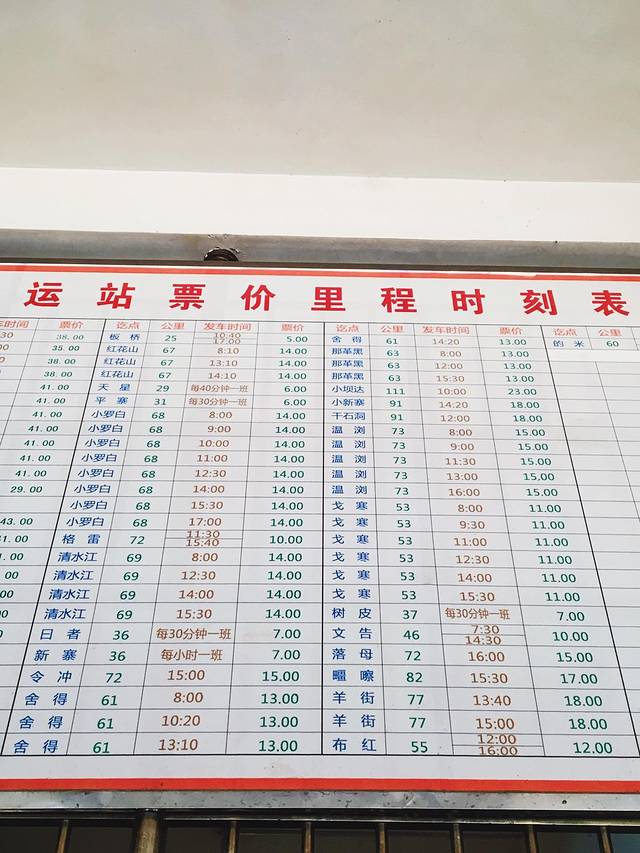 运站票价里程时刻表
时间 票价 讫点 公里 发车时间 票价 讫点 公里 发车时间 票价 讫点 公里
30 38.00 板桥 25 10:40 17:00 5.00 舍得 61 14:20 13.00 的米 60
35.00 红花山 67 8:10 14.00 那革黑 63 8:00 13.00
38.00 红花山 67 13:10 14.00 那革黑 63 12:00 13.00
38.00 红花山 67 14:10 14.00 那革黑 63 15:30 13.00
41.00 天星 29 每40分钟一班 6.00 小坝达 111 10:00 23.00
41.00 平寨 31 每30分钟一班 6.00 小新寨 91 14:20 18.00
41.00 小罗白 68 8:00 14.00 干石洞 91 12:00 18.00
41.00 小罗白 68 9:00 14.00 温浏 73 8:00 15.00
41.00 小罗白 68 10:00 14.00 温浏 73 9:00 15.00
41.00 小罗白 68 11:00 14.00 温浏 73 11:30 15.00
41.00 小罗白 68 12:30 14.00 温浏 73 13:00 15.00
29.00 小罗白 68 14:00 14.00 温浏 73 16:00 15.00
小罗白 68 15:30 14.00 戈寒 53 8:00 11.00
43.00 小罗白 68 17:00 14.00 戈寒 53 9:30 11.00
1.00 格雷 72 11:30 15:40 10.00 戈寒 53 11:00 11.00
1.00 清水江 69 8:00 14.00 戈寒 53 12:30 11.00
00 清水江 69 12:30 14.00 戈寒 53 14:00 11.00
00 清水江 69 14:00 14.00 戈寒 53 15:30 11.00
0 清水江 69 15:30 14.00 树皮 37 每30分钟一班 7.00
日者 36 每30分钟一班 7.00 文告 46 7:30 14:30 10.00
新寨 36 每小时一班 7.00 落母 72 16:00 15.00
令冲 72 15:00 15.00 嚓 82 15:30 17.00
舍得 61 8:00 13.00 羊街 77 13:40 18.00
舍得 61 10:20 13.00 羊街 77 15:00 18.00
舍得 61 13:10 13.00 布红 55 12:00 16:00 12.00